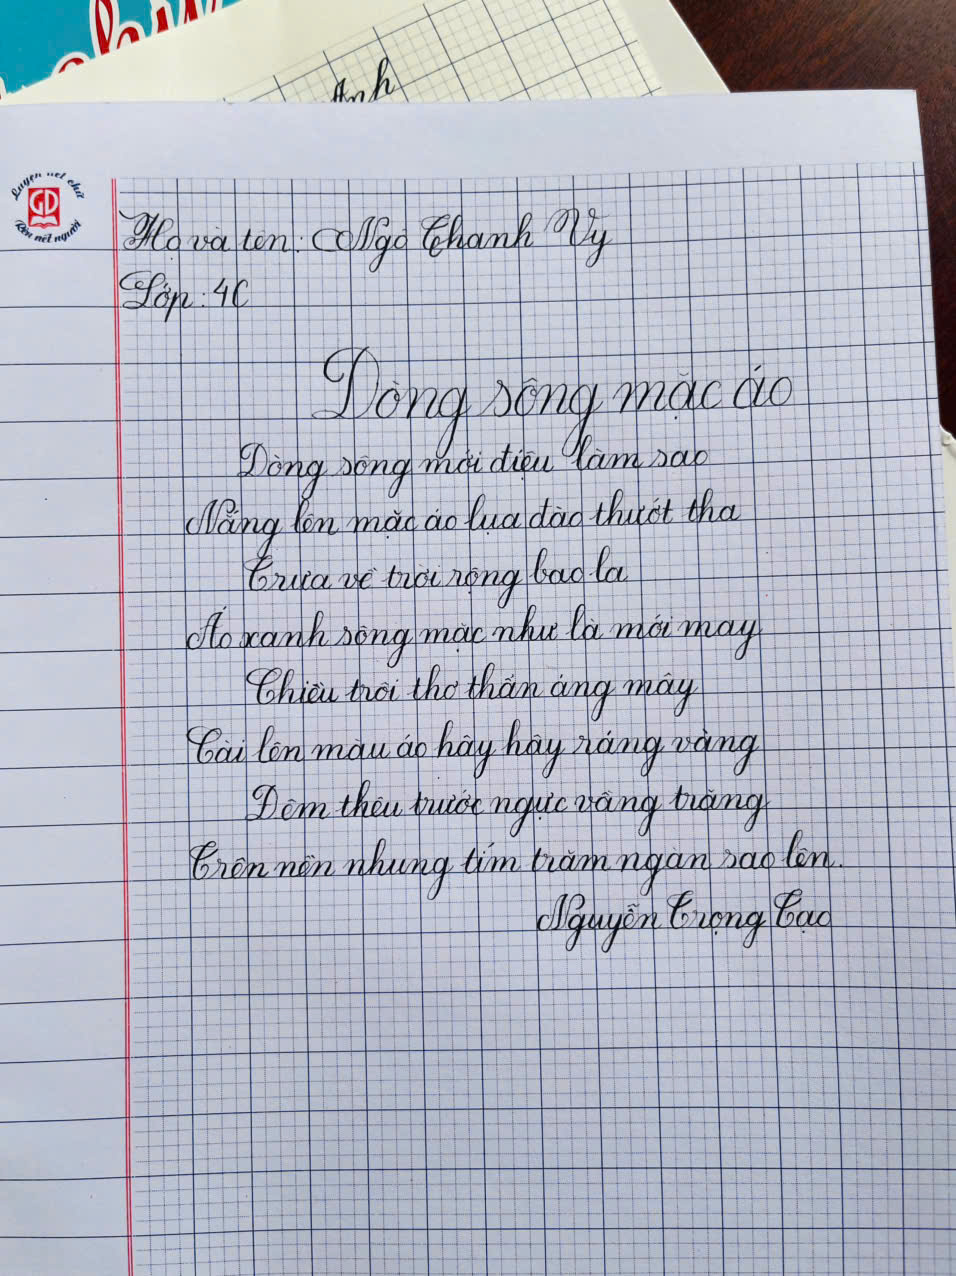 Anh
Luyện nét chữ
GD
Rèn nết người
Họ và tên: Ngô Thanh Vy
Lớp: 4C
Dòng sông mặc áo
Dòng sông mới điệu làm sao
Nắng lên mặc áo lụa đào thướt tha
Trưa về trời rộng bao la
Áo xanh sông mặc như là mới may
Chiều trôi thơ thẩn áng mây
Cài lên màu áo hây hây ráng vàng
Đêm thêu trước ngực vầng trăng
Trên nền nhung tím trăm ngàn sao lên.
Nguyễn Trọng Tạo